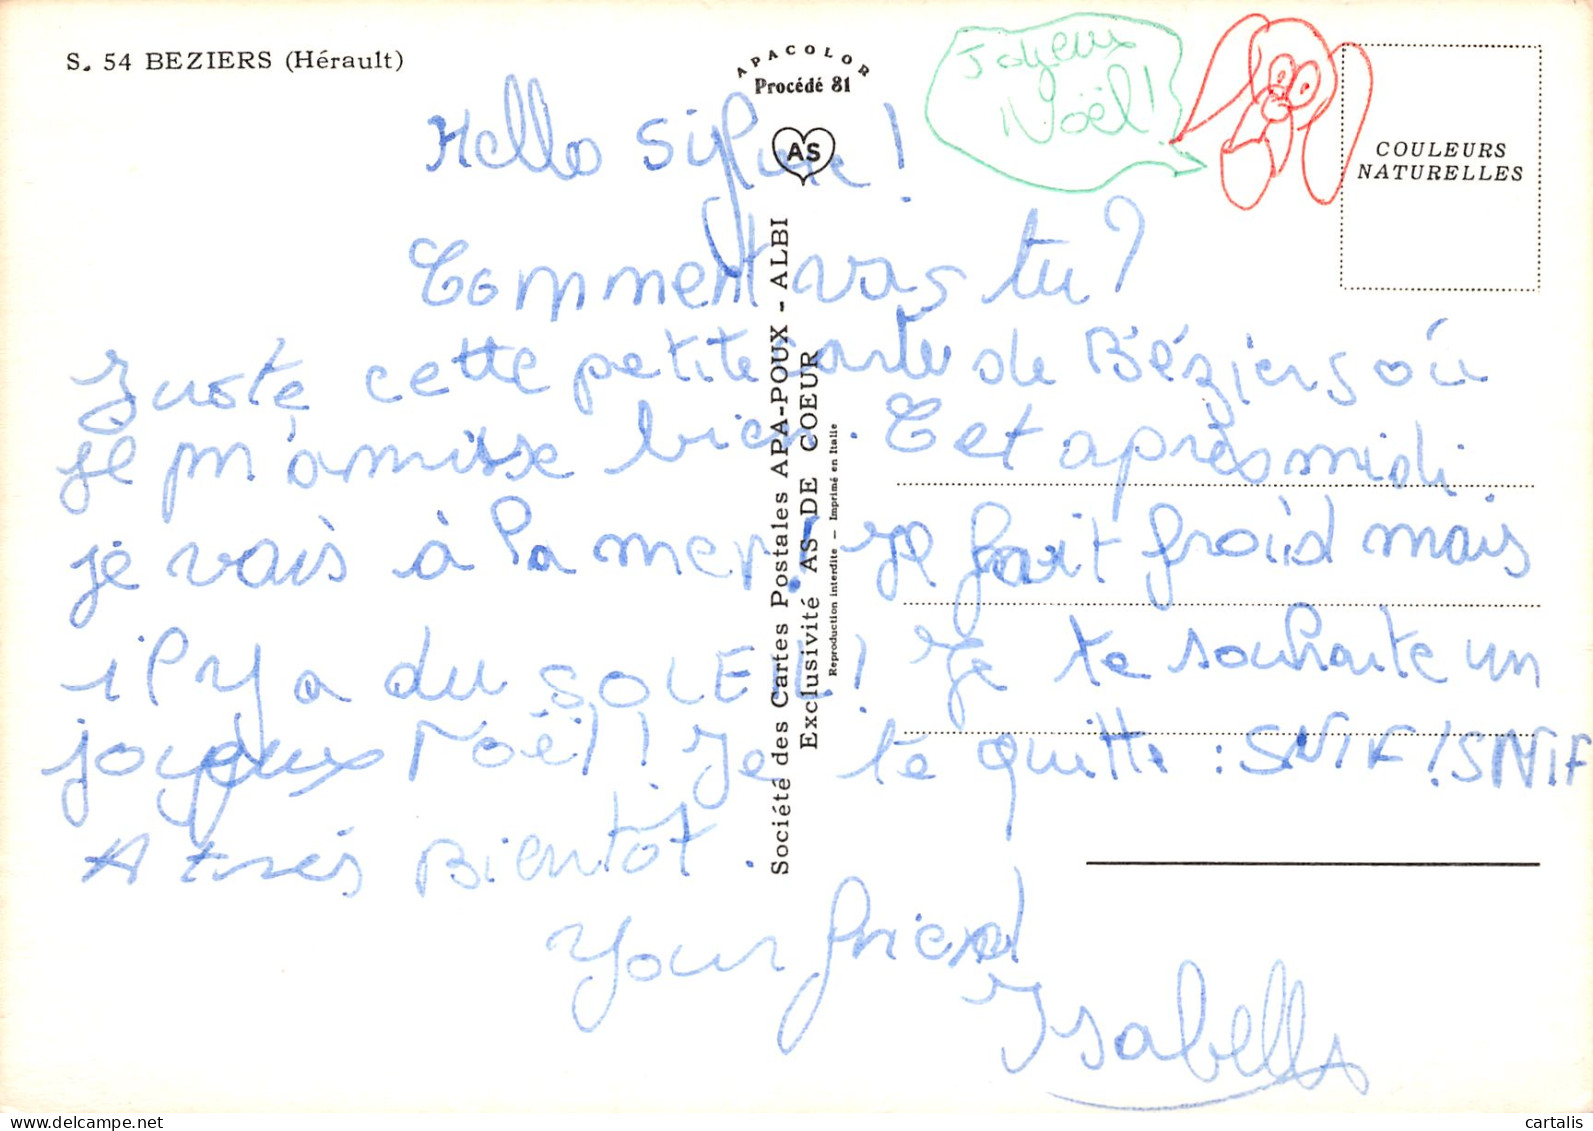 S. 54 BEZIERS (Hérault)
APACOLOR
Procédé 81
AS
Joyeux
Noël!
COULEURS
NATURELLES
Hello Sylvie !
Comment vas tu ?
Juste cette petite carte de Béziers où
je m'amuse bien. Cet après midi
je vais à la mer, il fait froid mais
il y a du SOLEIL! Je te souhaite un
joyeux Noël! Je te quitte : SNIF! SNIF
A très Bientôt.
Your friend
Isabelle
Société des Cartes Postales APA-POUX - ALBI
Exclusivité AS DE COEUR
Reproduction interdite — Imprimé en Italie
cartalis
delcampe.net